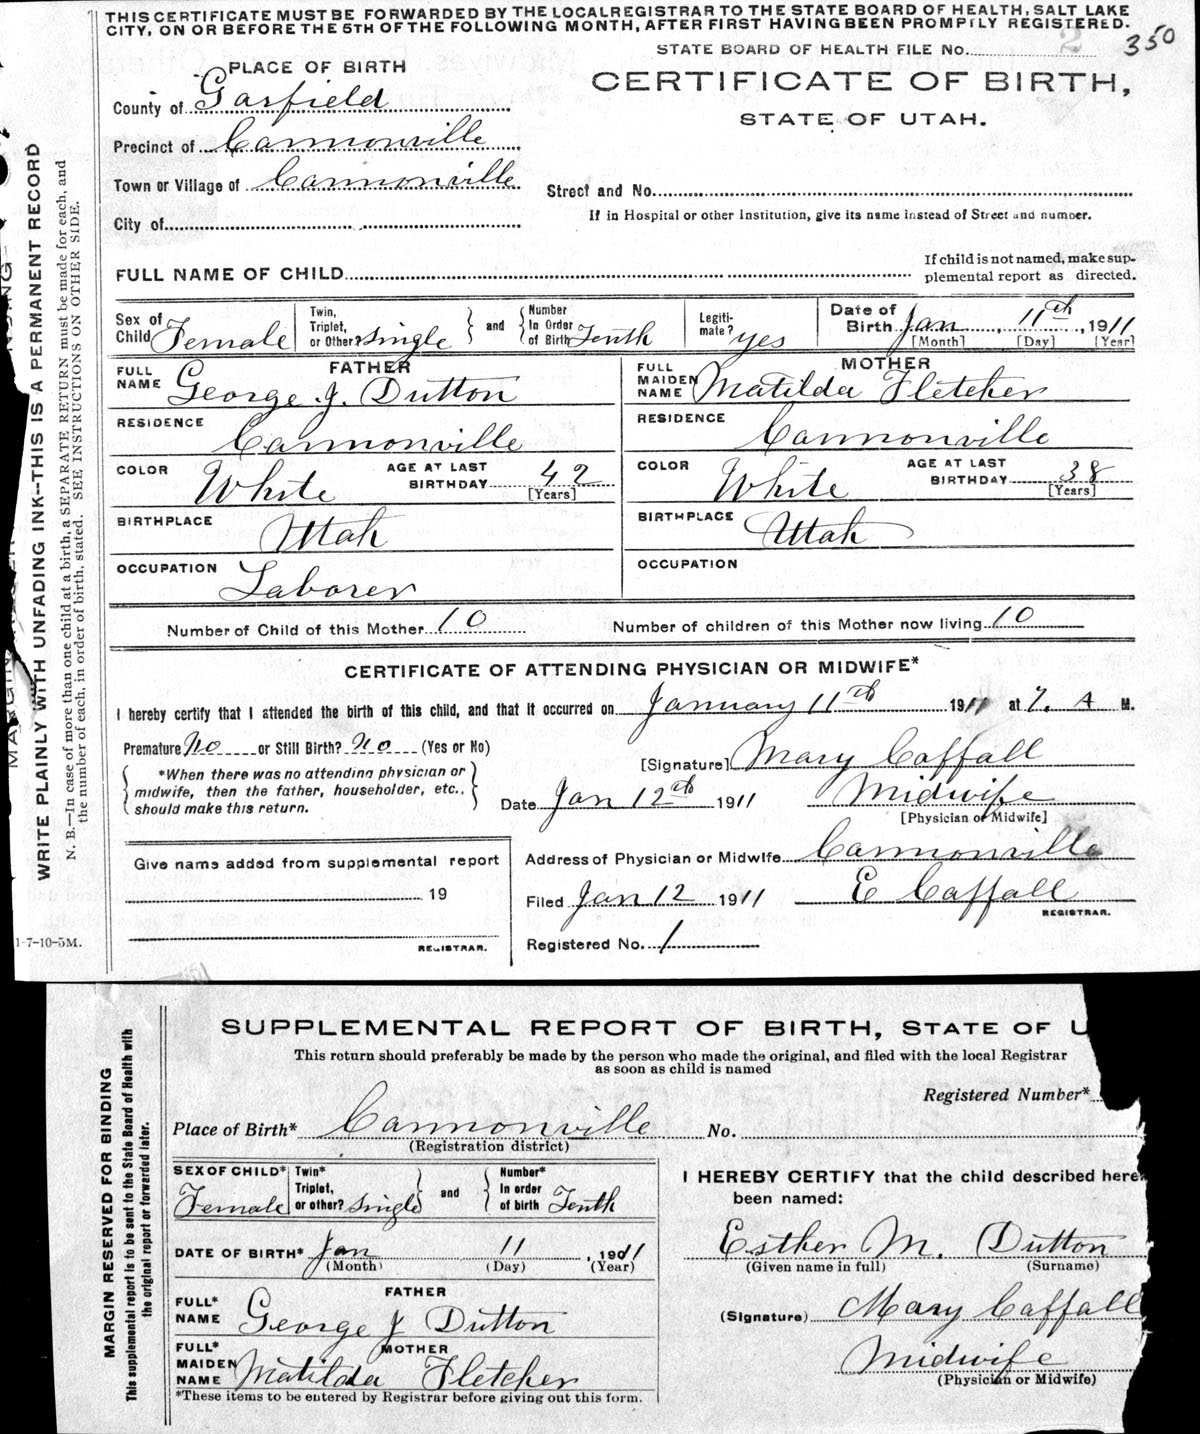 THIS CERTIFICATE MUST BE FORWARDED BY THE LOCAL REGISTRAR TO THE STATE BOARD OF HEALTH, SALT LAKE
CITY, ON OR BEFORE THE 5TH OF THE FOLLOWING MONTH, AFTER FIRST HAVING BEEN PROMPTLY REGISTERED.
STATE BOARD OF HEALTH FILE No. 2 350
PLACE OF BIRTH
CERTIFICATE OF BIRTH,
STATE OF UTAH.
County of Garfield
Precinct of Cannonville
Town or Village of Cannonville
Street and No.
If in Hospital or other Institution, give its name instead of Street and number.
City of
FULL NAME OF CHILD
If child is not named, make sup-
plemental report as directed.
Sex of Child Female
Twin, Triplet, or Other? single
and
Number In Order of Birth Tenth
Legiti-mate? yes
Date of Birth Jan, 11th, 1911
[Month] [Day] [Year]
FATHER
FULL NAME George J. Dutton
RESIDENCE Cannonville
COLOR White AGE AT LAST BIRTHDAY 42 [Years]
BIRTHPLACE Utah
OCCUPATION Laborer
MOTHER
FULL MAIDEN NAME Matilda Fletcher
RESIDENCE Cannonville
COLOR White AGE AT LAST BIRTHDAY 38 [Years]
BIRTHPLACE Utah
OCCUPATION
Number of Child of this Mother 10 Number of children of this Mother now living 10
CERTIFICATE OF ATTENDING PHYSICIAN OR MIDWIFE*
I hereby certify that I attended the birth of this child, and that it occurred on January 11th 1911 at 7. A M.
Premature No or Still Birth? No (Yes or No)
*When there was no attending physician or
midwife, then the father, householder, etc.,
should make this return.
[Signature] Mary Caffall
Date Jan 12th 1911 Midwife
[Physician or Midwife]
Give name added from supplemental report
19
REGISTRAR.
Address of Physician or Midwife Cannonville
Filed Jan 12 1911 E Caffall
REGISTRAR.
Registered No. 1
1-7-10-5M.
WRITE PLAINLY WITH UNFADING INK--THIS IS A PERMANENT RECORD
N. B.—In case of more than one child at a birth, a SEPARATE RETURN must be made for each, and
the number of each, in order of birth, stated. SEE INSTRUCTIONS ON OTHER SIDE.
SUPPLEMENTAL REPORT OF BIRTH, STATE OF U
This return should preferably be made by the person who made the original, and filed with the local Registrar
as soon as child is named
Registered Number*
Place of Birth* Cannonville No.
(Registration district)
SEX OF CHILD* Female
Twin* Triplet, or other? single
and
Number* In order of birth Tenth
DATE OF BIRTH* Jan 11, 1911
(Month) (Day) (Year)
FATHER
FULL* NAME George J Dutton
MOTHER
FULL* MAIDEN NAME Matilda Fletcher
*These items to be entered by Registrar before giving out this form.
I HEREBY CERTIFY that the child described here
been named:
Esther M. Dutton
(Given name in full) (Surname)
(Signature) Mary Caffall
Midwife
(Physician or Midwife)
MARGIN RESERVED FOR BINDING
This supplemental report is to be sent to the State Board of Health with
the original report or forwarded later.